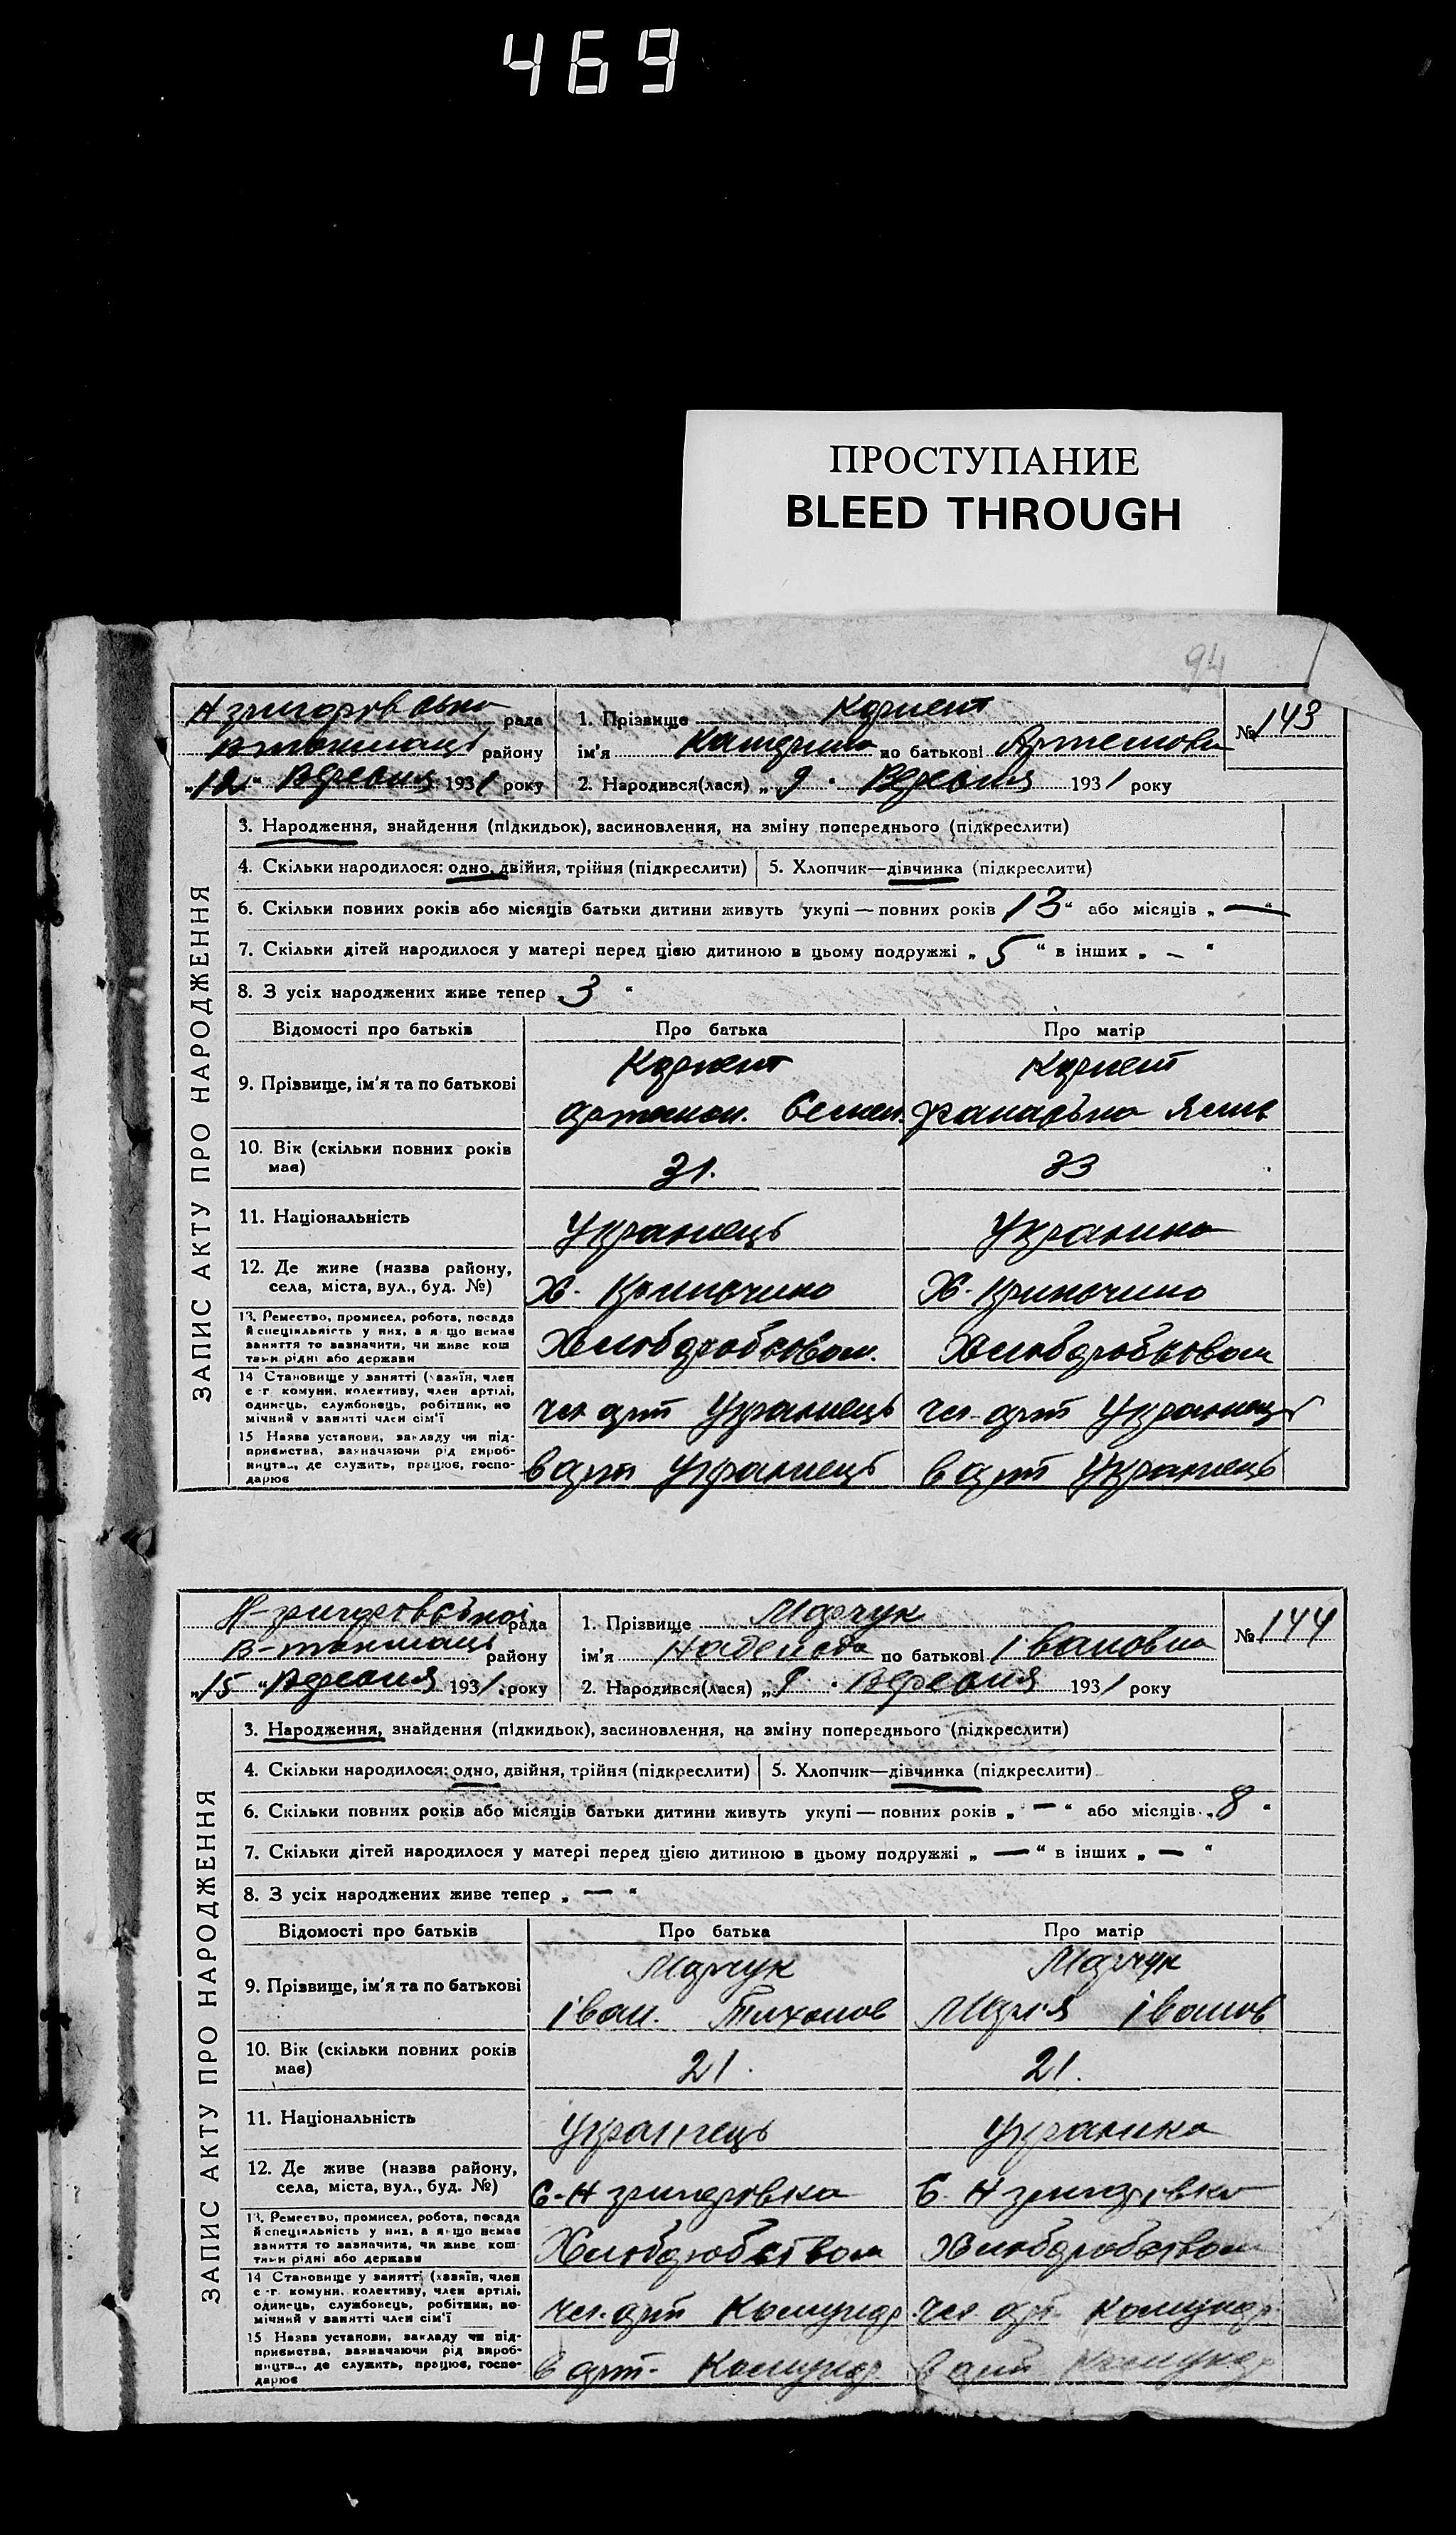 469
ПРОСТУПАНИЕ
BLEED THROUGH
94
ЗАПИС АКТУ ПРО НАРОДЖЕННЯ
рада
району
„12“ Вересня 1931 року
1. Прізвище
№ 143
ім'я Катерина по батькові Артемовн
2. Народився(лася) „9“ Вересня 1931 року
3. Народження, знайдення (підкидьок), засиновлення, на зміну попереднього (підкреслити)
4. Скільки народилося: одно, двійня, трійня (підкреслити) 5. Хлопчик—дівчинка (підкреслити)
6. Скільки повних років або місяців батьки дитини живуть укупі — повних років 13“ або місяців „—“
7. Скільки дітей народилося у матері перед цією дитиною в цьому подружжі „5“ в інших „—“
8. З усіх народжених живе тепер „3“
Відомості про батьків Про батька Про матір
9. Прізвище, ім'я та по батькові
10. Вік (скільки повних років має) 31. 33
11. Національність Украінець Украінка
12. Де живе (назва району, села, міста, вул., буд. №) Х. Х.
13. Ремество, промисел, робота, посада
й спеціяльність у них, а якщо немає
заняття то зазначити, чи живе кош
тами рідні або держави
Хліборобством. Хліборобством
14 Становище у занятті (хазяїн, член
с-г. комуни, колективу, член артілі,
одинець, службовець, робітник, по
мічний у занятті член сім'ї
чл арт Украінець чл. арт Украінець
15 Назва установи, закладу чи під-
приємства, зазначаючи рід вироб-
ництва, де служить, працює, госпо-
дарює
в арт Украінець в арт Украінець
ЗАПИС АКТУ ПРО НАРОДЖЕННЯ
Н-григоровської рада
району
„15“ Вересня 1931 року
1. Прізвище Марчук
№ 144
ім'я по батькові Івановна
2. Народився(лася) „9“ Вересня 1931 року
3. Народження, знайдення (підкидьок), засиновлення, на зміну попереднього (підкреслити)
4. Скільки народилося: одно, двійня, трійня (підкреслити) 5. Хлопчик—дівчинка (підкреслити)
6. Скільки повних років або місяців батьки дитини живуть укупі — повних років „—“ або місяців „8“
7. Скільки дітей народилося у матері перед цією дитиною в цьому подружжі „—“ в інших „—“
8. З усіх народжених живе тепер „—“
Відомості про батьків Про батька Про матір
9. Прізвище, ім'я та по батькові
Марчук Марчук
Іван. Тихонов Марія Іванов
10. Вік (скільки повних років має) 21. 21.
11. Національність Украінець Украінка
12. Де живе (назва району, села, міста, вул., буд. №) С-Н григоровка С. Н григоровка
13. Ремество, промисел, робота, посада
й спеціяльність у них, а якщо немає
заняття то зазначити, чи живе кош-
тами рідні або держави
Хліборобством Хліборобством
14 Становище у занятті (хазяїн, член
с-г. комуни, колективу, член артілі,
одинець, службовець, робітник, по-
мічний у занятті член сім'ї
чл. арт Комунар чл арт. Комунар
15 Назва установи, закладу чи під-
приємства, зазначаючи рід вироб-
ництва, де служить, працює, госпо-
дарює
в арт. Комунар в арт Комунар